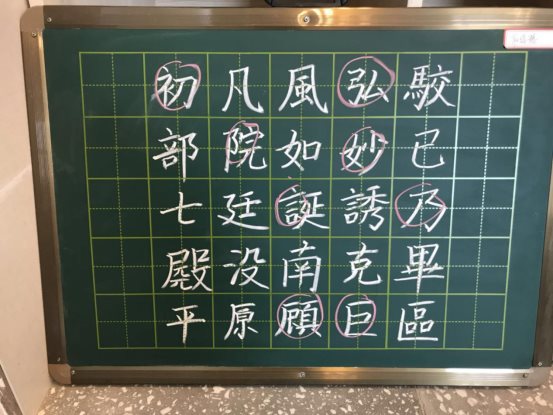 初凡風弘駁
部院如妙已
七廷誕誘乃
殿没南克畢
平原顧巨區